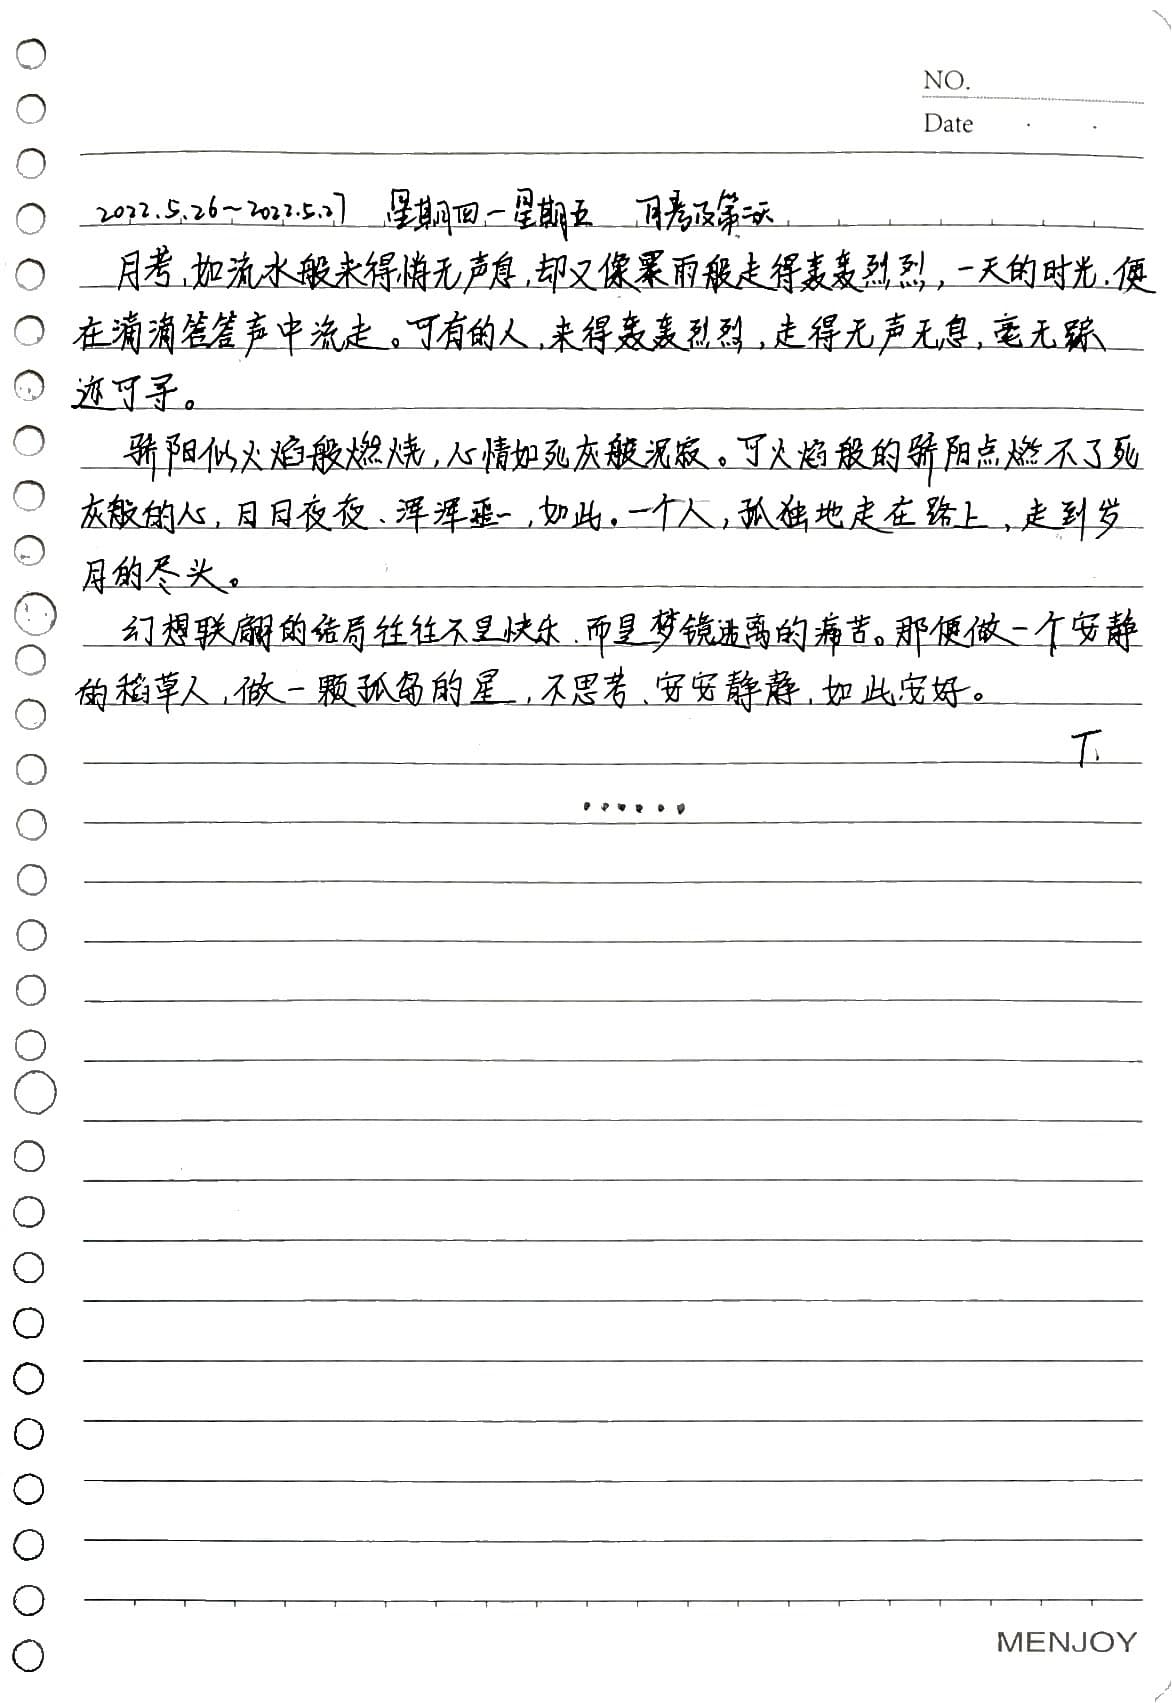 NO.
Date
2022.5.26~2022.5.27 星期四—星期五 月考及第二天
月考,如流水般来得悄无声息,却又像暴雨般走得轰轰烈烈,一天的时光,便
在滴滴答答声中流走。可有的人,来得轰轰烈烈,走得无声无息,毫无踪
迹可寻。
骄阳似火焰般燃烧,心情如死灰般沉寂。可火焰般的骄阳点燃不了死
灰般的心,日日夜夜、浑浑噩噩,如此。一个人,孤独地走在路上,走到岁
月的尽头。
幻想联翩的结局往往不是快乐,而是梦镜逃离的痛苦。那便做一个安静
的稻草人,做一颗孤岛的星,不思考、安安静静,如此安好。
T.
......
MENJOY